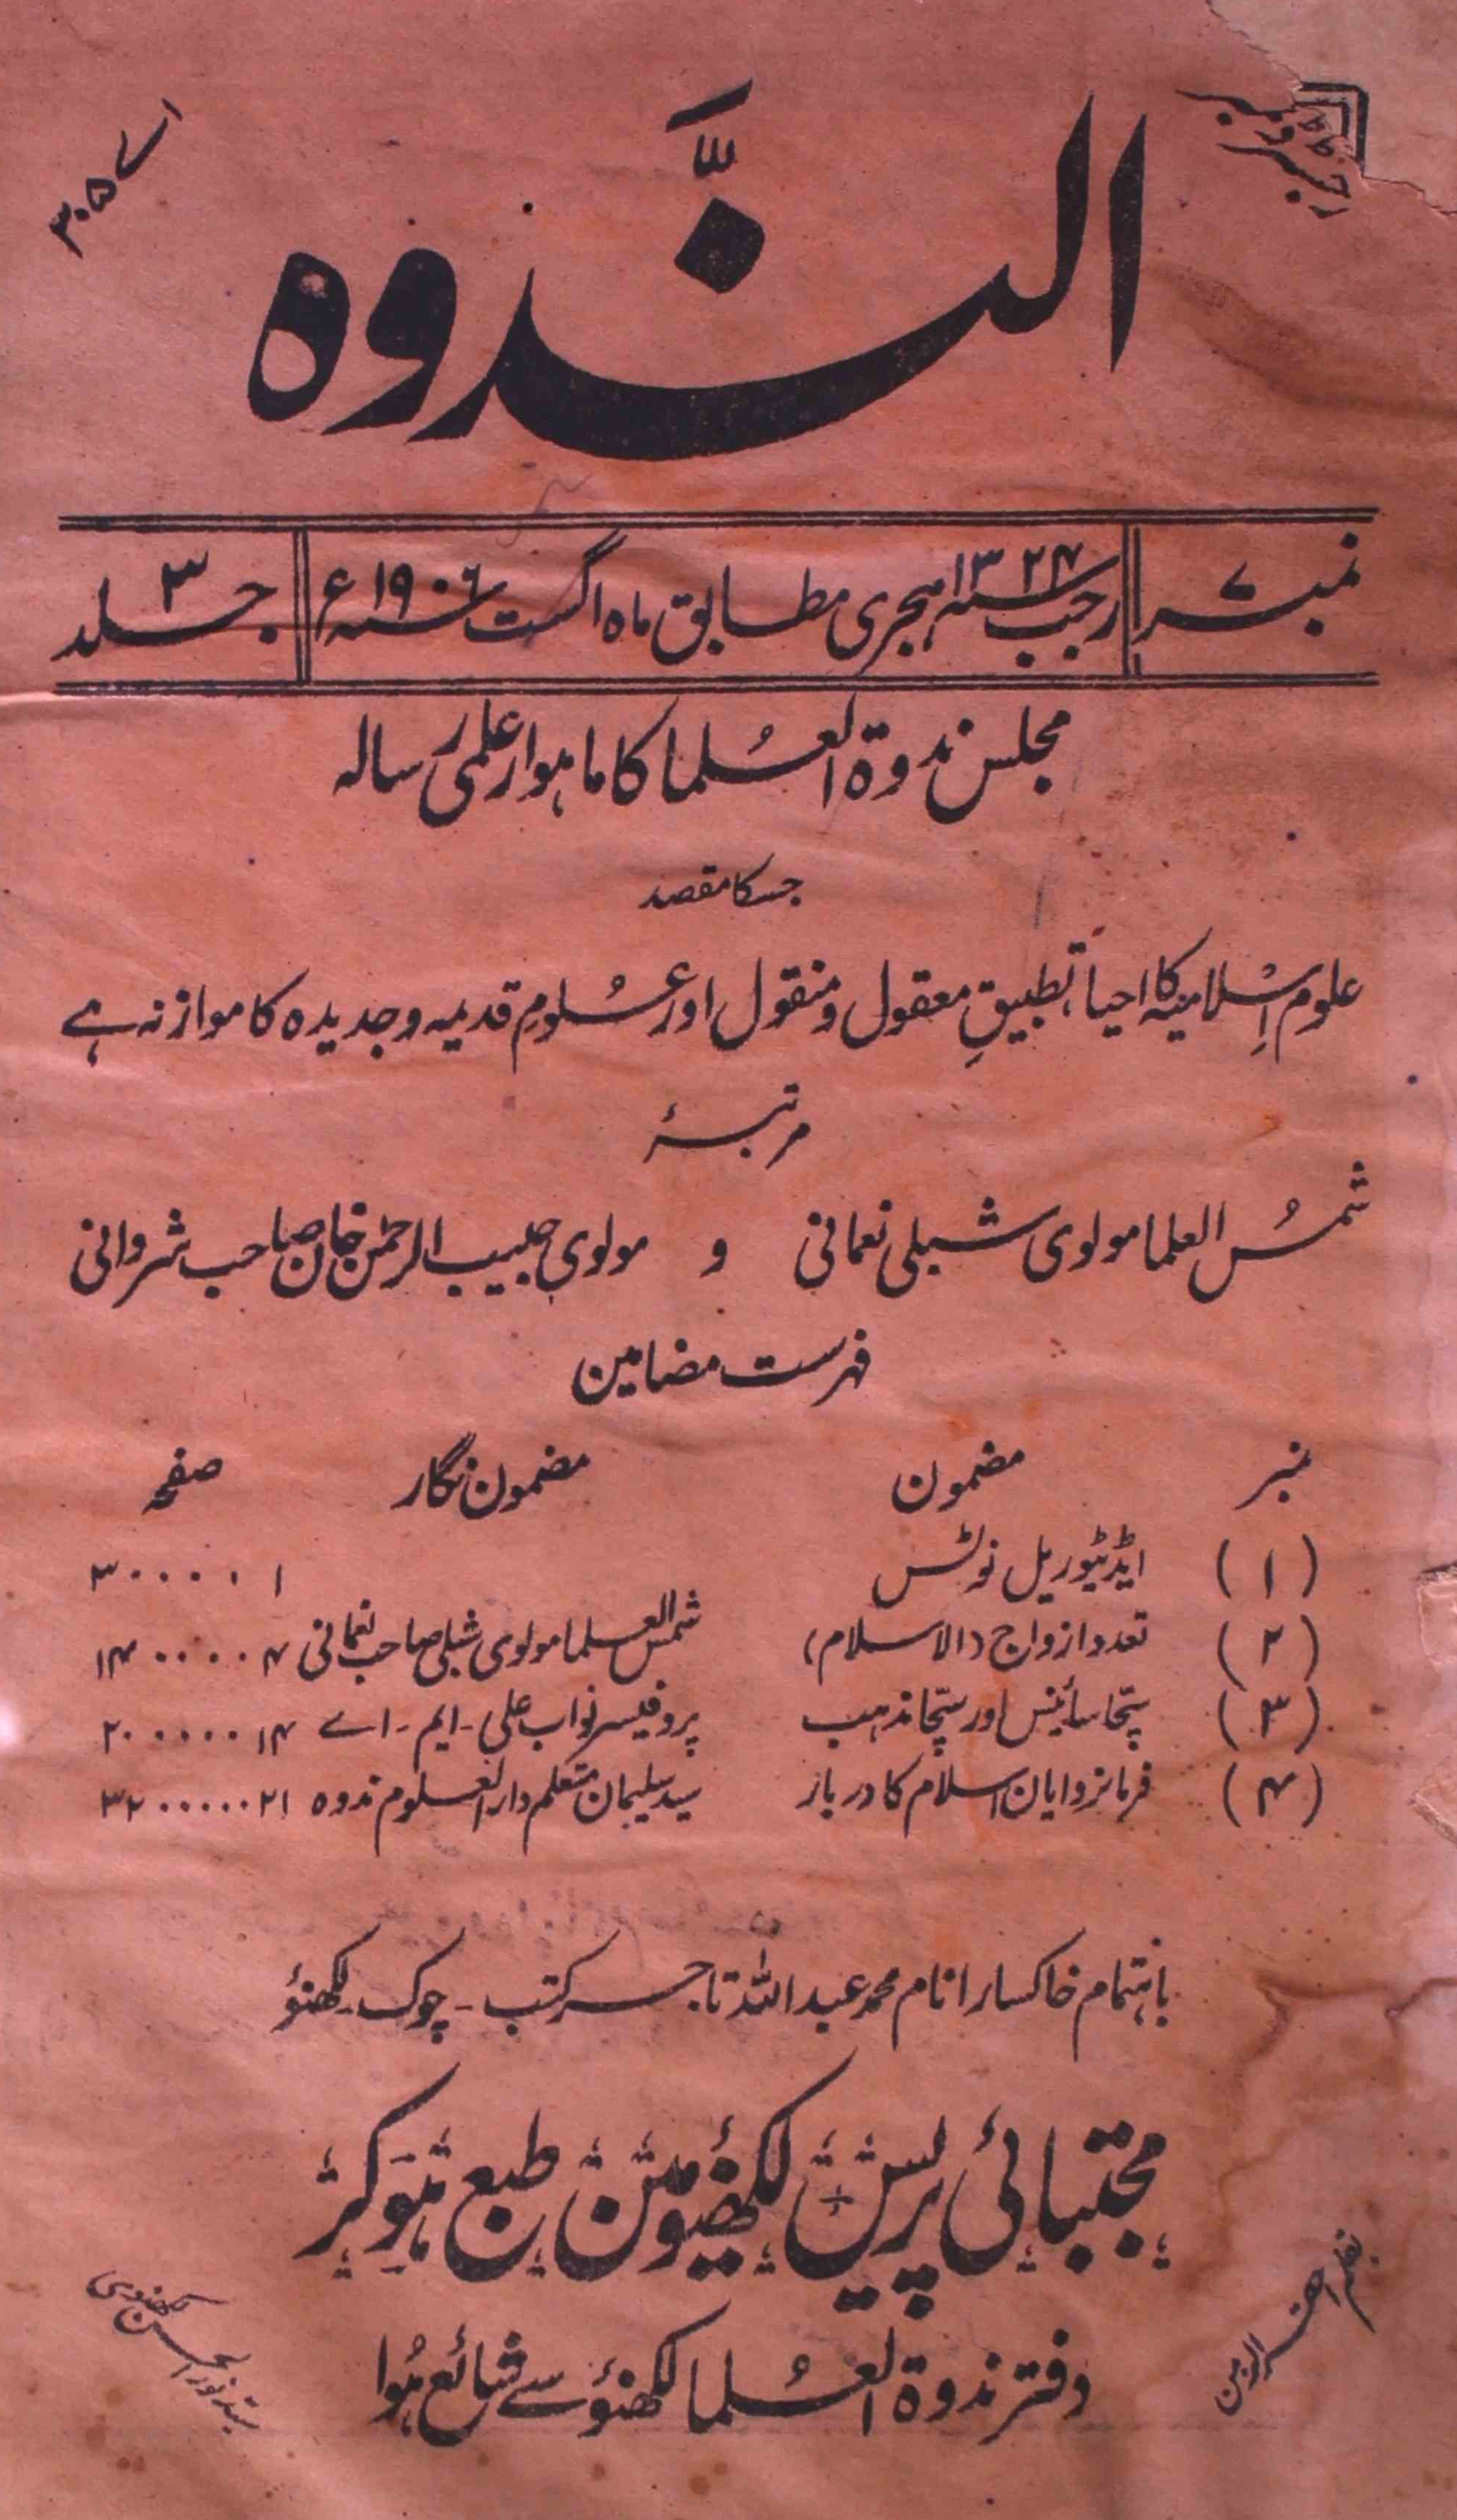 اے ۳۰۵
الندوہ
نمبر ۷ رجب سنہ ۱۳۲۴ ہجری مطابق ماہ اگست سنہ ۱۹۰۶ء جلد ۳
مجلس ندوۃ العلما کا ماہوار علمی رسالہ
جسکا مقصد
علوم اسلامیہ کا احیا، تطبیقِ معقول و منقول اور علومِ قدیمہ و جدیدہ کا موازنہ ہے
مرتبۂ
شمس العلما مولوی شبلی نعمانی و مولوی حبیب الرحمن خان صاحب شروانی
فہرست مضامین
نمبر مضمون مضمون نگار صفحہ
(۱) ایڈیٹوریل نوٹس ۱ ..... ۳
(۲) تعدد ازواج (الاسلام) شمس العلما مولوی شبلی صاحب نعمانی ۴ ..... ۱۴
(۳) سچّا سائینس اور سچّا مذہب پروفیسر نواب علی - ایم - اے ۱۴ ..... ۲۰
(۴) فرمانروایان اسلام کا دربار سید سلیمان متعلم دارالعلوم ندوہ ۲۱ ..... ۳۲
باہتمام خاکسار انام محمد عبد اللہ تاجر کتب - چوک - لکھنؤ
مجتبائی پریس لکھنؤ مین طبع ہو کر
دفتر ندوۃ العلما لکھنؤ سے شائع ہُوا
بقلم احقر الزمن
سید نور الحسن لکھنوی